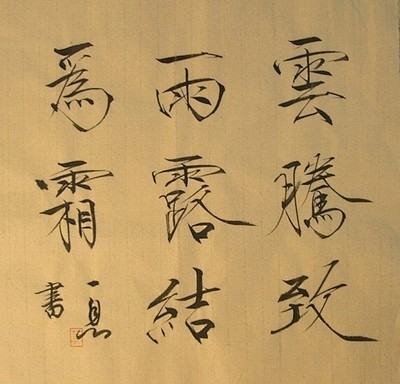 雲騰致
雨露結
為霜
一息
書